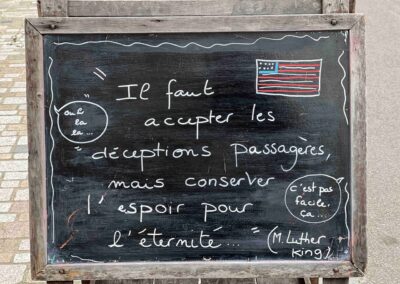 "Il faut
accepter les
déceptions passagères,
mais conserver
l'espoir pour
l'éternité..."
(M. Luther
King)
ouh
la
la...
c'est pas
facile,
ça...